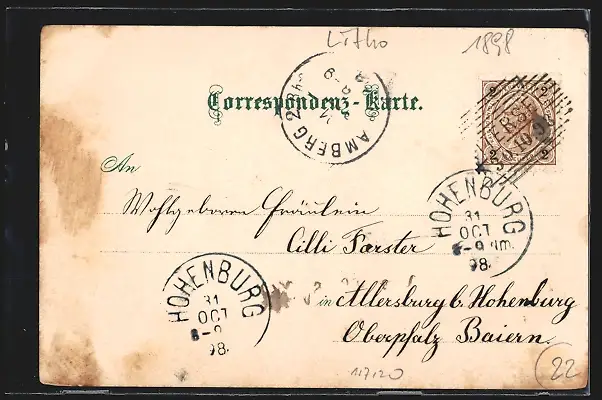 Litho
1898
Correspondenz-Karte.
AMBERG 2
2 2
2 2
An
Wohlgeboren Fräulein
Cilli Forster
HOHENBURG
31
OCT
8-9 Vm.
98.
HOHENBURG
31
OCT
98.
in Allersburg b. Hohenburg
Oberpfalz Baiern.
117120
22